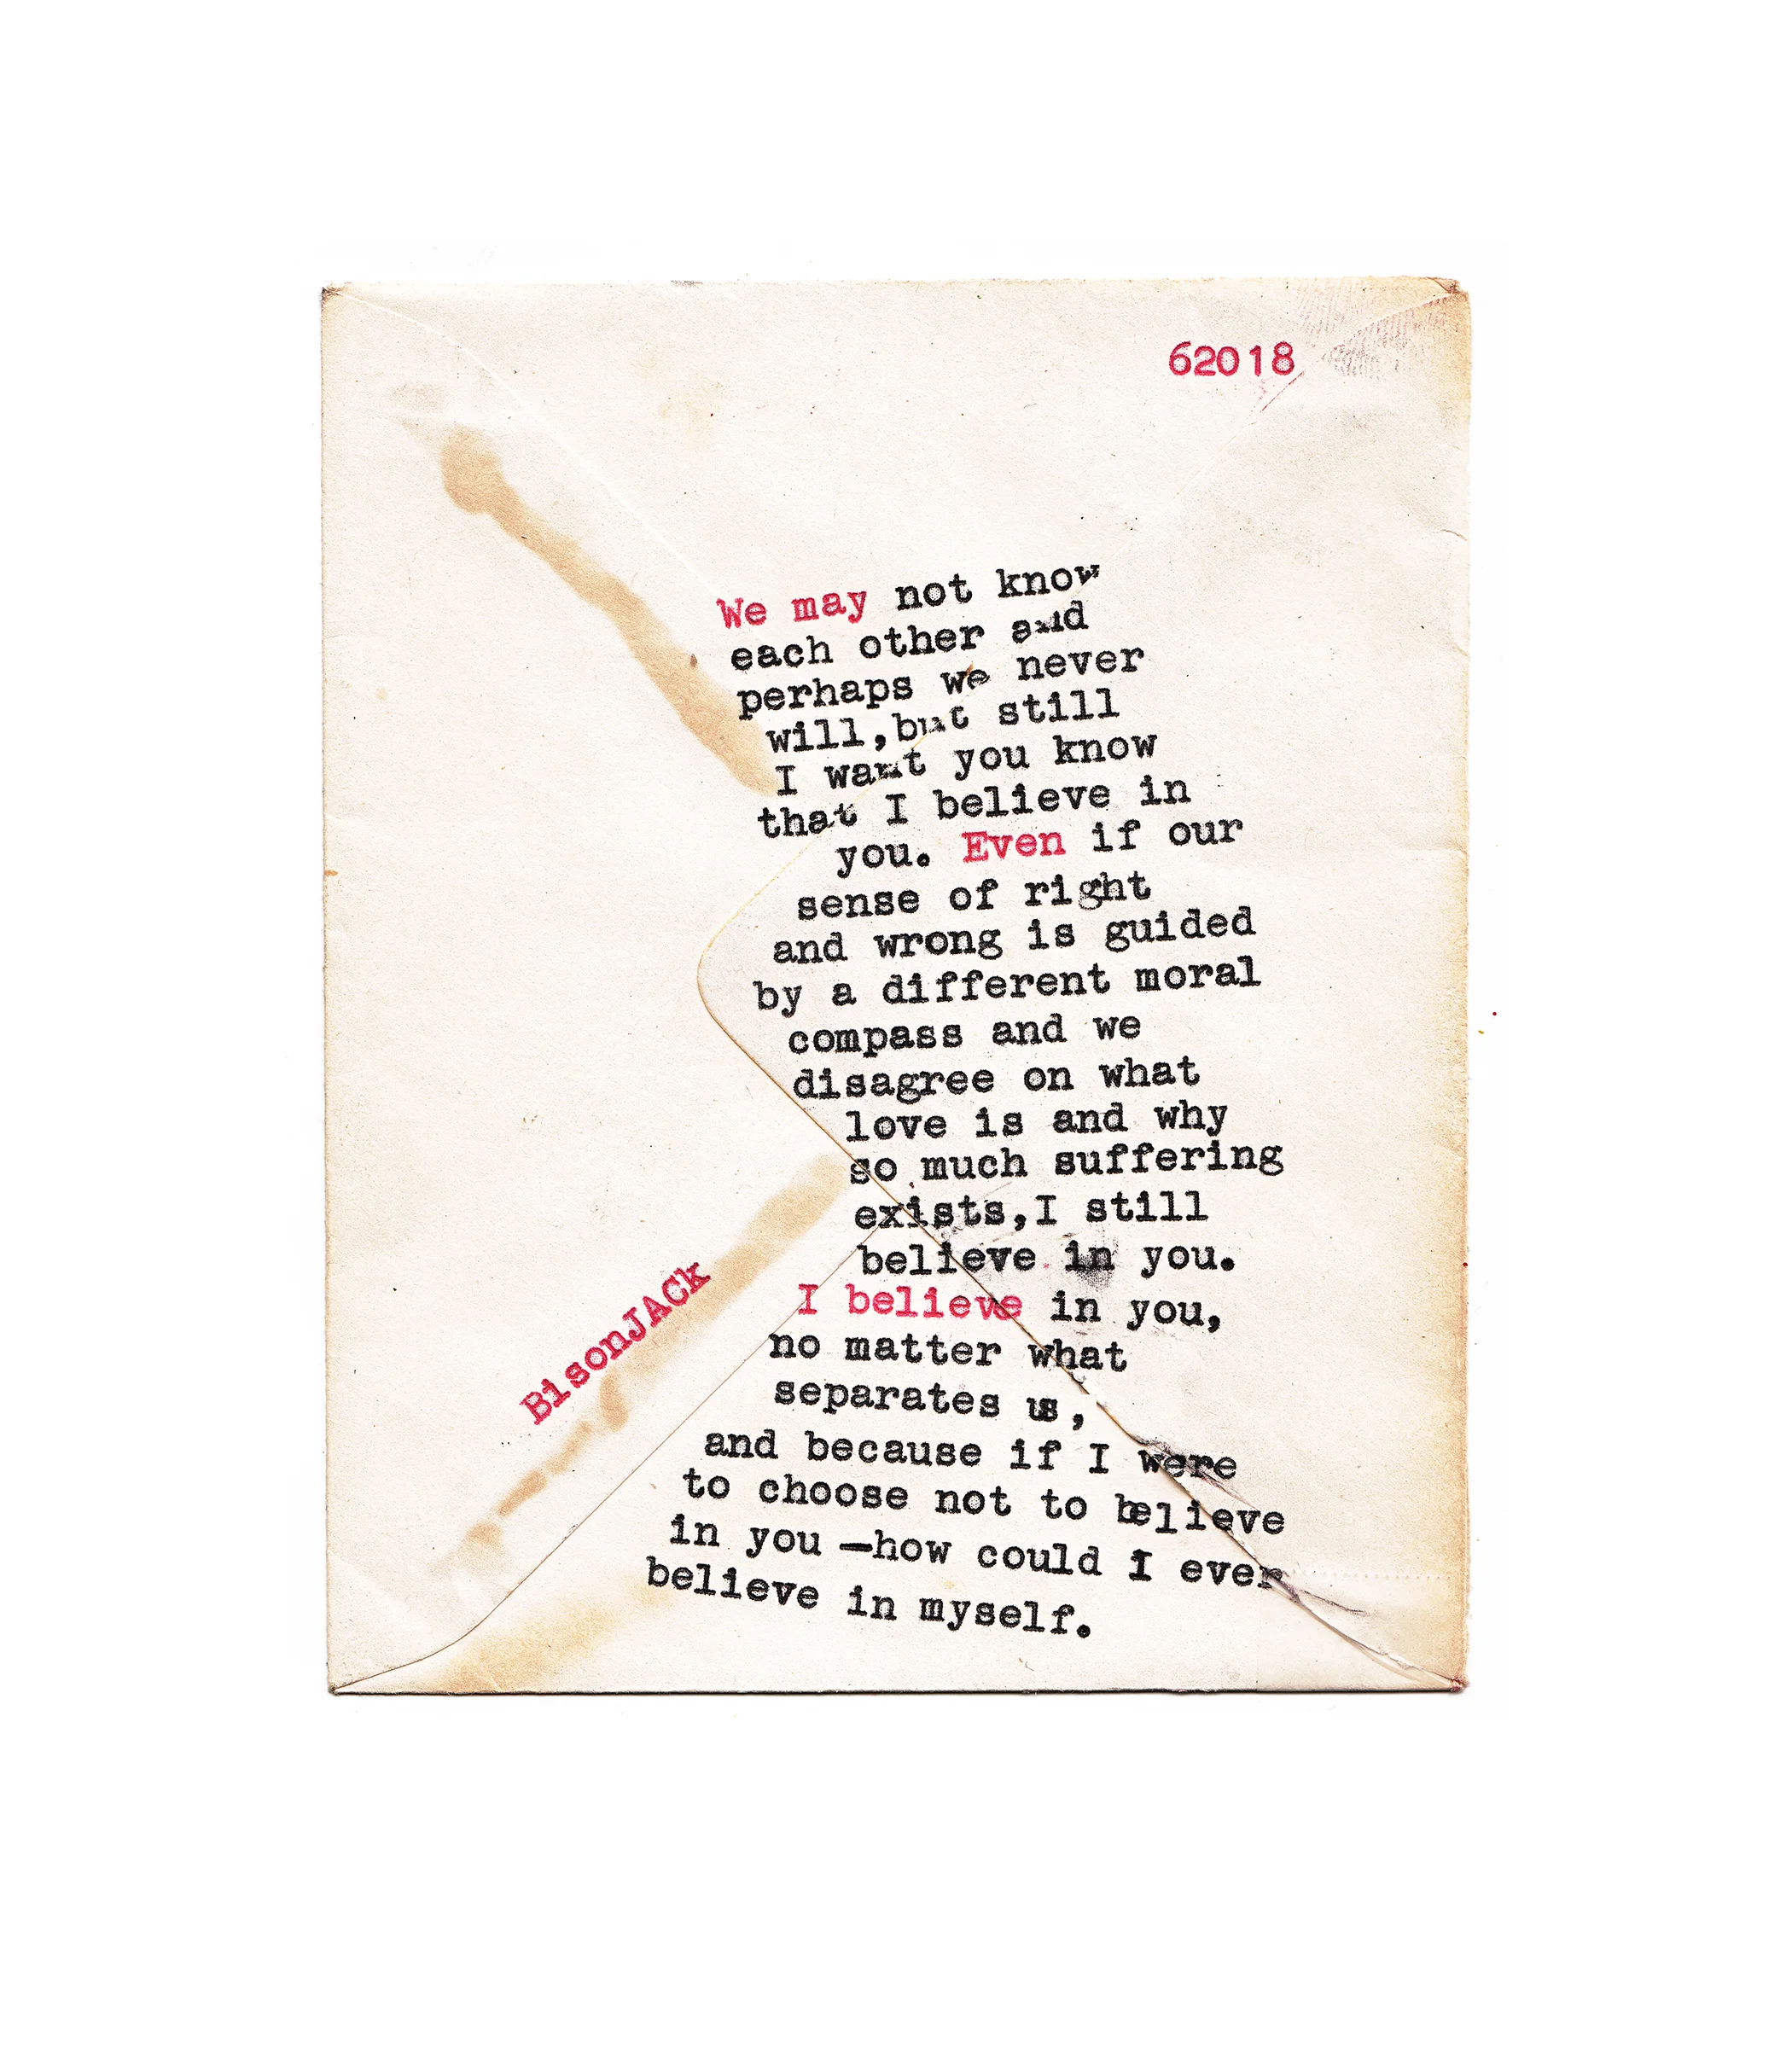 62018
We may not know
each other and
perhaps we never
will,but still
I want you know
that I believe in
you. Even if our
sense of right
and wrong is guided
by a different moral
compass and we
disagree on what
love is and why
so much suffering
exists,I still
believe in you.
I believe in you,
no matter what
separates us,
and because if I were
to choose not to believe
in you —how could I ever
believe in myself.
BisonJACk